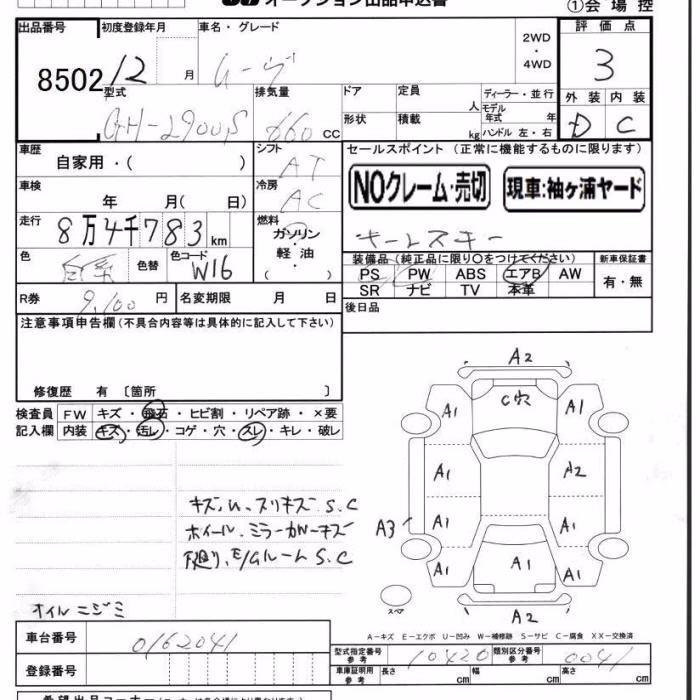 オークション出品申込書
①会場控
出品番号 初度登録年月 車名・グレード 評価点
8502 12月 ムーヴ 2WD・4WD 3
型式 排気量 ドア 定員 人 ディーラー・並行 外装 内装
660cc 形状 積載 kg モデル年式 年 ハンドル 左・右 D C
車歴 シフト セールスポイント (正常に機能するものに限ります)
自家用・( ) AT
NOクレーム・売切 現車:袖ヶ浦ヤード
車検 冷房
年 月( 日) AC
走行 8万4千783km 燃料 ガソリン・軽油・( )
キーレスキー
色 色替 色コード W16
装備品 (純正品に限り○をつけてください) 新車保証書
PS PW ABS エアB AW 有・無
SR ナビ TV 本革
R券 9,100円 名変期限 月 日 後日品
注意事項申告欄(不具合内容等は具体的に記入して下さい)
修復歴 有 〔箇所 〕
検査員 FW キズ・飛石・ヒビ割・リペア跡・×要
記入欄 内装 キズ・汚レ・コゲ・穴・スレ・キレ・破レ
A2
C穴
A1 A1
A1 A2
A1 A1
A3
A1 A1 A1
A2
スペア
キズ,U、スリキズS.C
ホイール、ミラーカバーキズ
下廻り、E/GルームS.C
オイルニジミ
A-キズ E-エクボ U-凹み W-補修跡 S-サビ C-腐食 XX-交換済
車台番号 0162041
型式指定番号 参考 10420 類別区分番号 参考 0041
登録番号
車庫証明用 参考 長さ cm 幅 cm 高さ cm